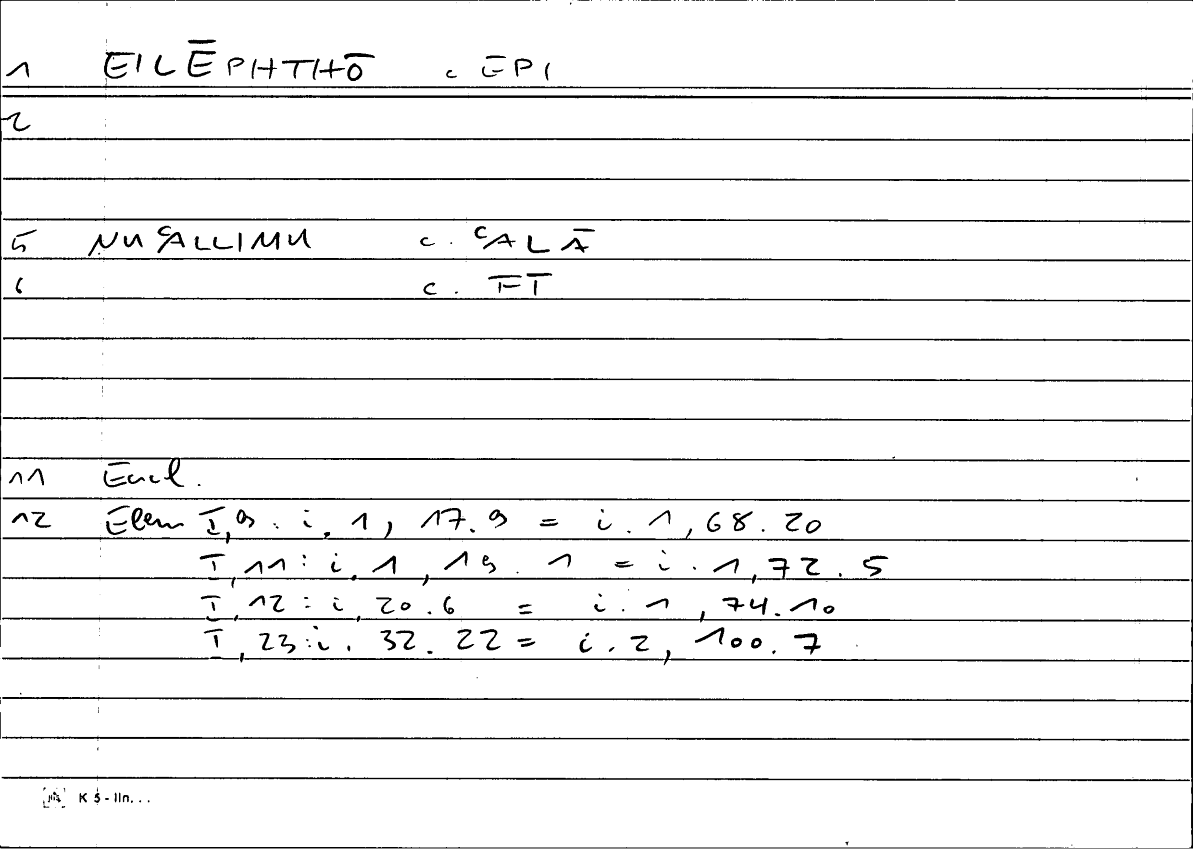 1 EILĒPHTHŌ c EPI
2
5 NU CALLIMU c. CALĀ
6 c.
11 Eucl.
12 Elem I,9: i. 1, 17.9 = i. 1, 68.20
I,11: i. 1, 19. 1 = i. 1, 72. 5
I,12: i, 20.6 = i. 1, 74.10
I,23: i. 32. 22 = i. 2, 100. 7
K 5 - lln...